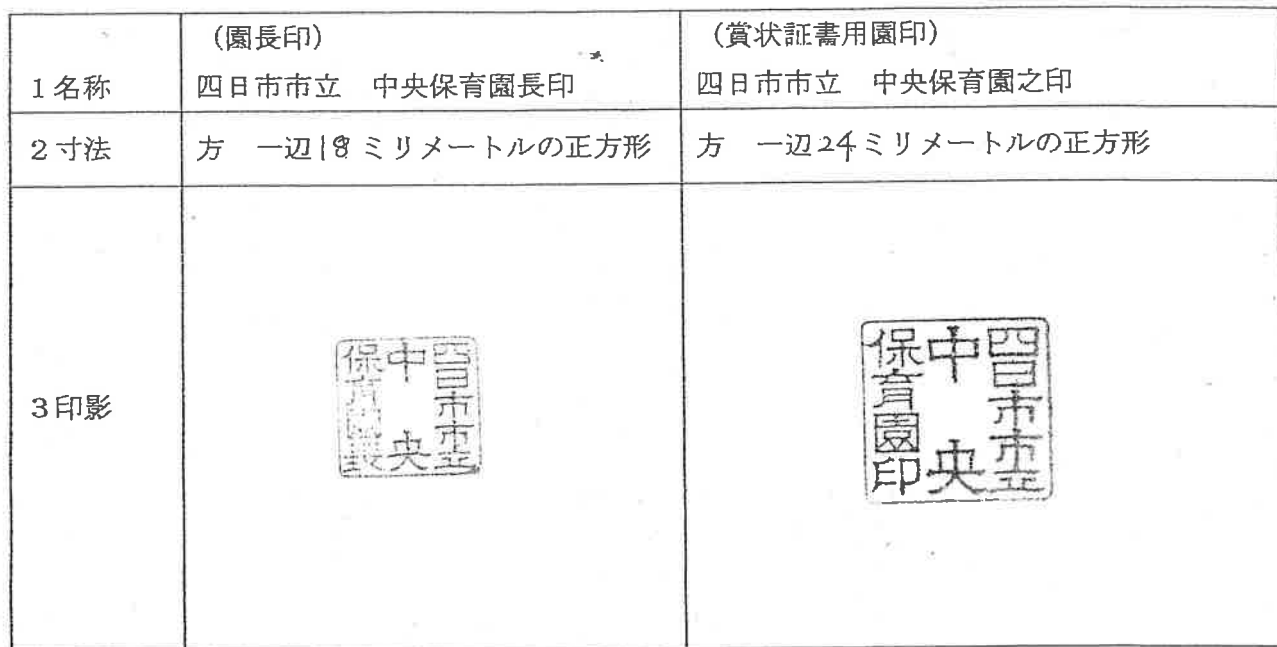 (園長印)
(賞状証書用園印)
1名称
四日市市立　中央保育園長印
四日市市立　中央保育園之印
2寸法
方　一辺18ミリメートルの正方形
方　一辺24ミリメートルの正方形
3印影
四日市市立
中央
保育園長
四日市市立
中央
保育園印